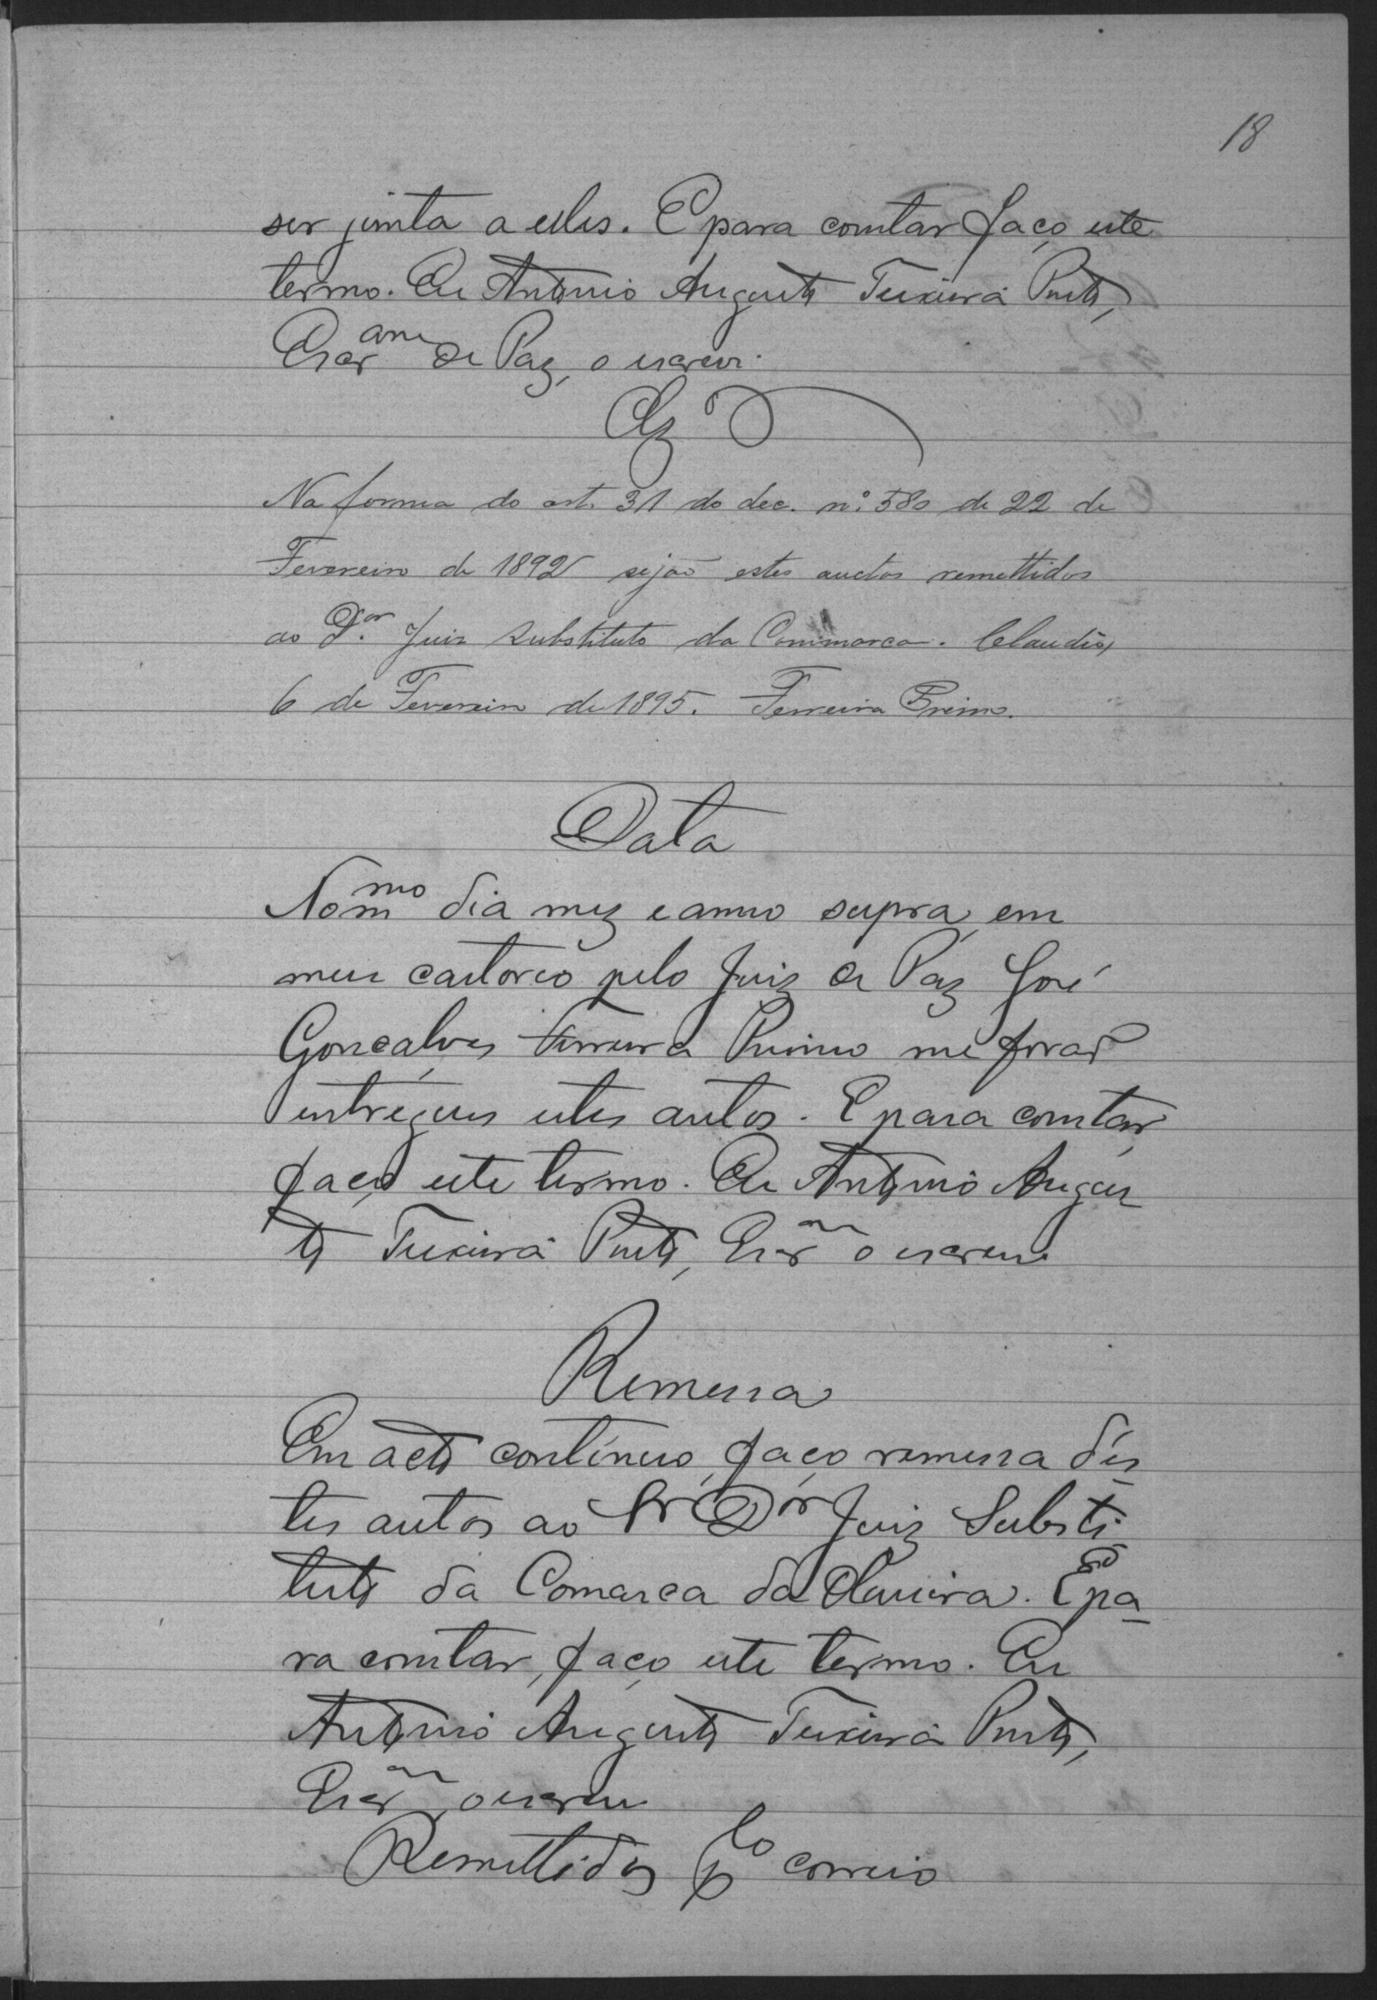 18
ser junta a elles. E para constar faço este
termo. Eu Antonio Augusto Teixeira Porto,
Escr.am de Paz, o escrevi.
Clzo
Na forma do art. 31 do dec. nº 580 de 22 de
Fevereiro de 1892 sejão estes auctos remettidos
ao D.or Juiz substituto da Commarca. Claudio,
6 de Fevereiro de 1895. Ferreira Primo.
Data
No mmo dia mez e anno supra, em
meu cartorio pelo Juiz de Paz José
Gonçalves Ferreira Primo me forão
entregues estes autos. E para constar,
faço este termo. Eu Antonio Augus
to Teixeira Porto, Escram o escrevi
Remessa
Em acto continuo, faço remessa des
tes autos ao Sr Dor Juiz Substi
tuto da Comarca da Oliveira. E pa
ra constar, faço este termo. Eu
Antonio Augusto Teixeira Porto,
Escram o escrevi
Remettidos plo correio